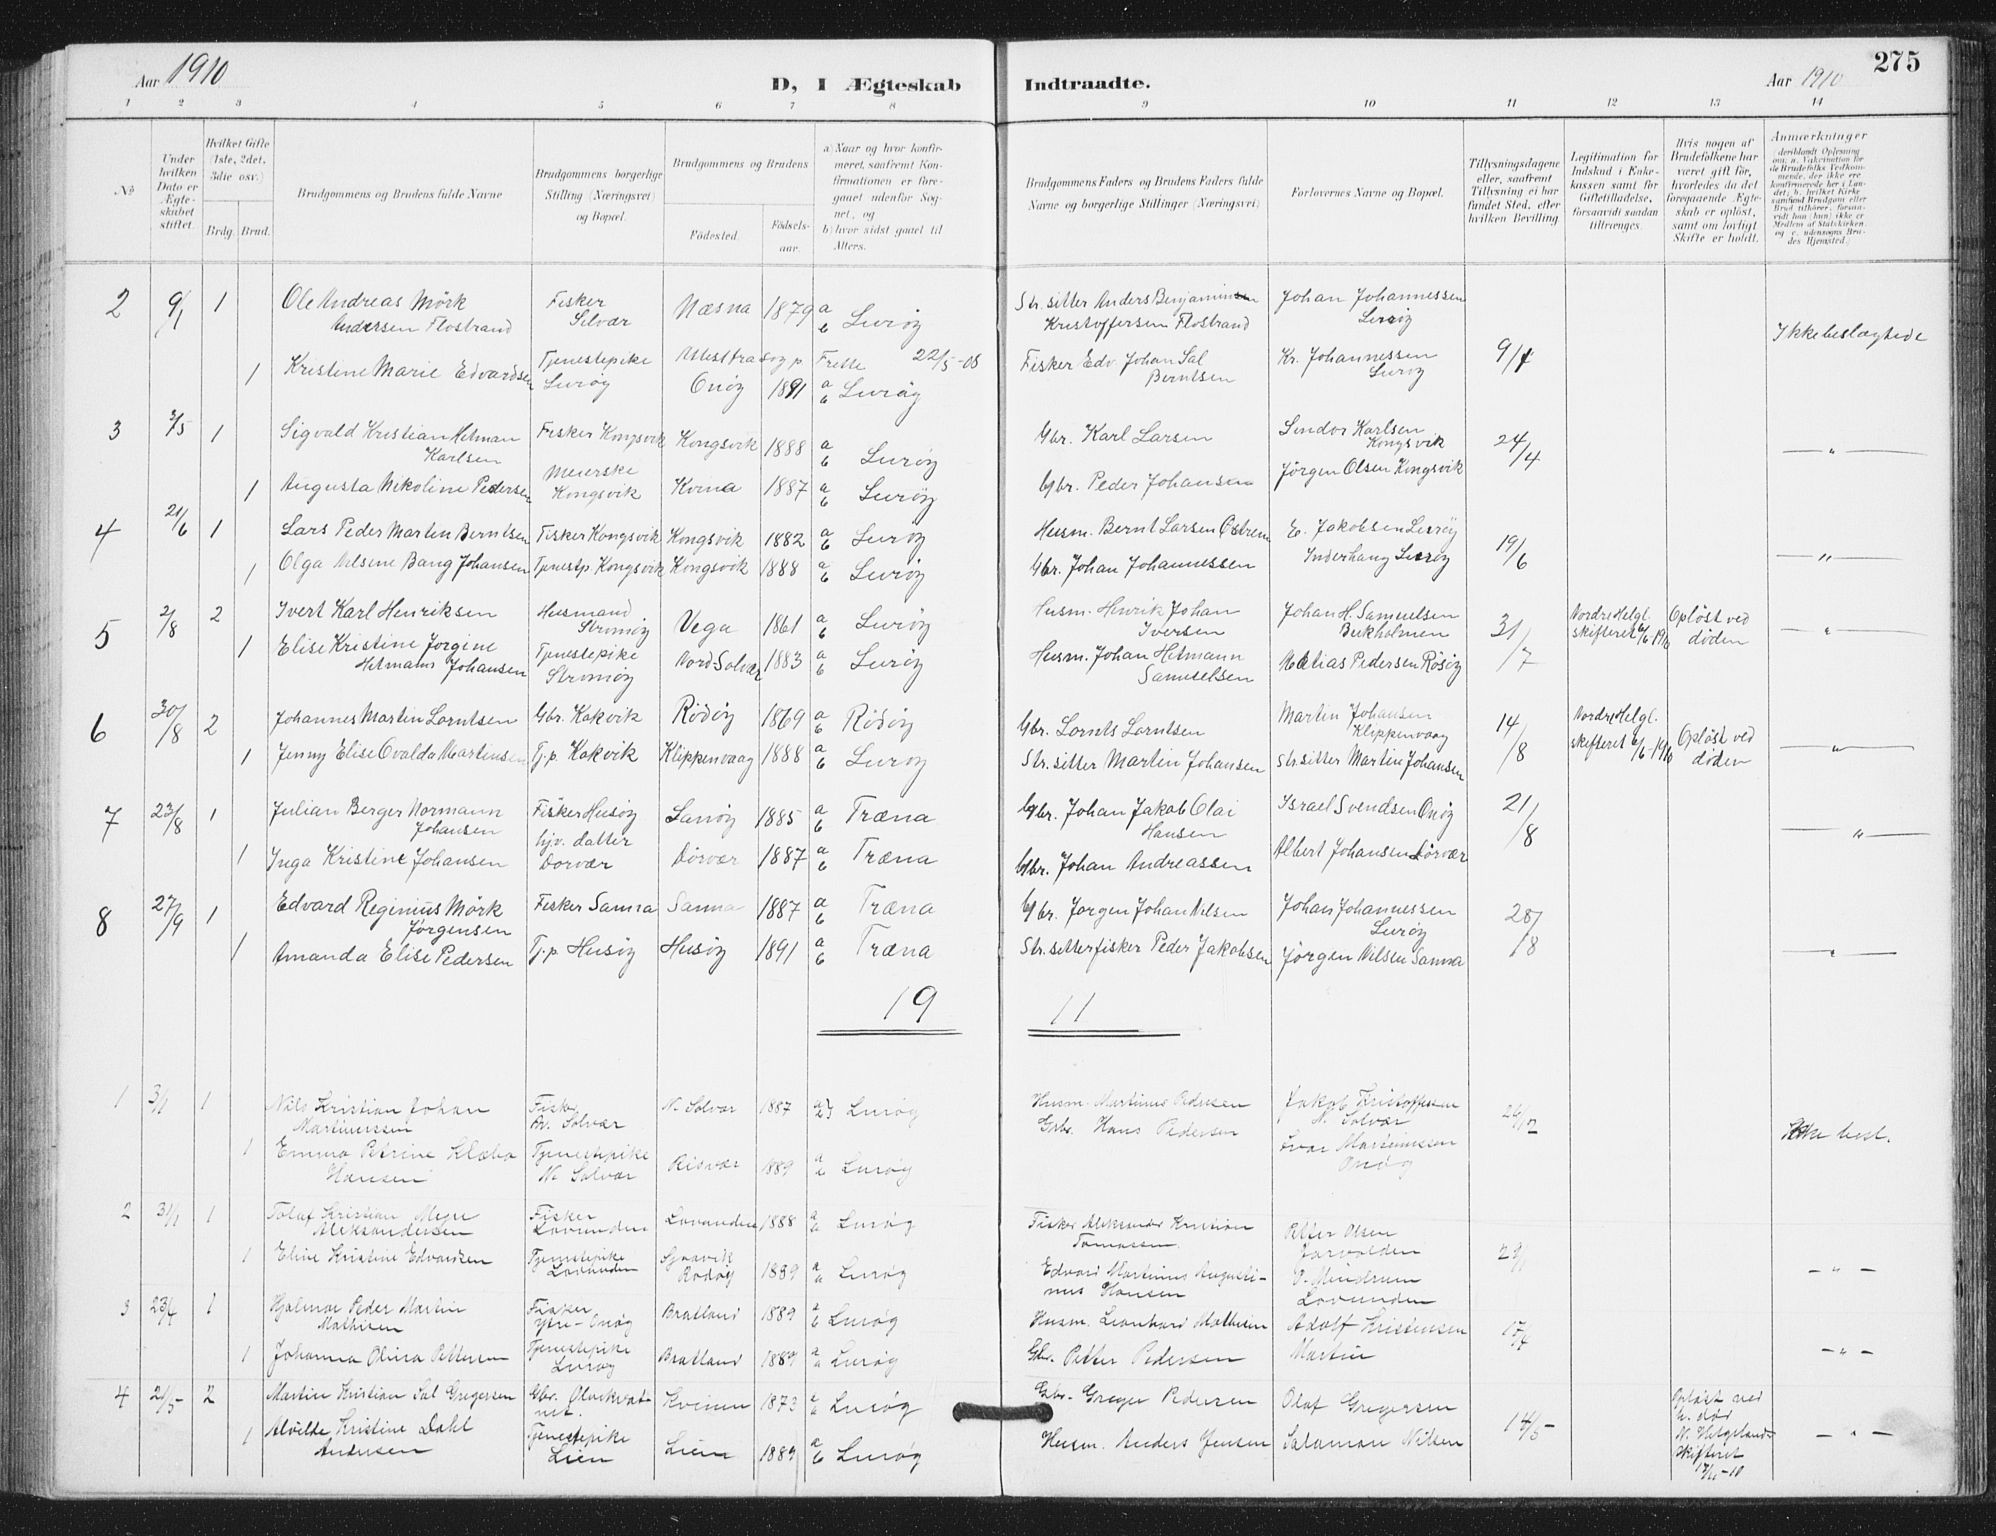 Aar 1910
D, I Ægteskab
Indtraadte.
Aar 1910
275
1 2 3 4 5 6 7 8 9 10 11 12 13 14
№
Under hvilken Dato er Ægteskabet stiftet.
Hvilket Gifte (1ste, 2det, 3die osv.)
Brdg. Brud.
Brudgommens og Brudens fulde Navne
Brudgommens borgerlige Stilling (Næringsvei) og Bopæl.
Brudgommens og Brudens
Fødested.
Fødselsaar.
a) Naar og hvor konfirmeret, saafremt Konfirmationen er foregaaet udenfor Sognet, og
b) hvor sidst gaaet til Alters.
Brudgommens Faders og Brudens Faders fulde Navne og borgerlige Stillinger (Næringsvei)
Forlovernes Navne og Bopæl.
Tillysningsdagene eller, saafremt Tillysning ei har fundet Sted, efter hvilken Bevilling
Legitimation for Indskud i Enkekassen samt for Giftetilladelse, forsaavidt saadan tiltrænges.
Hvis nogen af Brudefolkene har været gift før, hvorledes da det foregaaende Ægteskab er opløst, samt om lovligt Skifte er holdt.
Anmærkninger
2 9/1 1 Ole Andreas Mörk Fisker Næsna 1879 a Str. sitter Anders Benjaminsen Johan Johannessen
Andersen Flostrand Selvær b Lurøy Kristoffersen Flostrand Lurøy Ikke beslægtede
1 Kristine Marie Edvardsen Tjenestepike 22/5-05 Fisker Edv. Johan Sal Kr. Johannessen 9/1
Lurøy Onøy 1891 a b Lurøy Berntsen Lurøy
3 2/5 1 Sigvald Kristian Hetman Fisker Kongsvik Kongsvik 1888 a Gbr. Karl Larsen Sindor Karlsen 24/4
Karlsen b Lurøy Kongsvik — " —
1 Augusta Nikoline Pedersen Meierske Kongsvik Kvina 1887 a b Lurøy Gbr. Peder Johansen Jörgen Olsen Kongsvik
4 21/6 1 Lars Peder Martin Berntsen Fisker Kongsvik Kongsvik 1882 a b Lurøy Husm. Bernt Larsen E. Jakobsen Lurøy 19/6
1 Olga Nilsine Bang Johansen Tjenestp. Kongsvik Kongsvik 1888 a b Lurøy Gbr. Johan Johannessen Inderhaug Lurøy — " —
5 2/8 2 Ivert Karl Henriksen Husmand Vega 1861 a b Lurøy Husm. Henrik Johan Johan H. Samuelsen 31/7 Nordre Helgl. Opløst ved
Stromöy Iversen Birkholmen skifteret 6/6-1910 döden — " —
1 Elise Kristine Jorgine Tjenestepike Nord Solvær 1883 a b Lurøy Husm. Johan Hetmann Matias Pedersen Røsöy
Hetmanns Johansen Stromöy Samuelsen
6 30/8 2 Johannes Martin Lorntsen Gbr. Kakvik Rödöy 1869 a b Rödöy Gbr. Lornts Lorntsen Martin Johansen 14/8 Nordre Helgl. Opløst ved
Klippenvaag skifteret 6/6-1910 döden — " —
1 Jenny Elise Ovalda Martinsen Tj.p. Kakvik Klippenvaag 1888 a b Lurøy Str. sitter Martin Johansen Str. sitter Martin Johansen
7 23/8 1 Julian Berger Normann Fisker Husöy Sanöy 1885 a b Træna Gbr. Johan Jakob Olai Israel Svendsen Onöy 21/8
Johansen Hansen — " —
1 Inga Kristine Johansen hjv. datter Dorvær Dörvær 1887 a b Træna Gbr. Johan Andreassen Albert Johansen Dörvær
8 27/9 1 Edvard Reginius Mörk Fisker Sanna Sanna 1887 a b Træna Gbr. Jorgen Johan Nilsen Johan Johannessen 28/8
Jörgensen Lurøy
1 Amanda Elise Pedersen Tj.p. Husöy Husöy 1891 a b Træna Str. sitter fisker Peder Jakobsen Jörgen Nilsen Sanna — " —
19 11
1 3/1 1 Nils Kristian Johan Fisker N. Solvær 1887 Lurøy Husm. Martinus Pedersen Jakob Kristoffersen 26/12
Martinussen N. Solvær Gbr. Hans Pedersen N. Solvær Ikke besl.
1 Emma Petrine Klæbo Tjenestepike Risvær 1889 Lurøy Ivar Martinussen
Hansen N. Solvær Onøy
2 31/1 1 Tolaf Kristian Meyer Fisker Lovunden 1888 Lurøy Fisker Aleksander Kristian Petter Olsen 29/1
Aleksandersen Lovunden Tomassen
1 Eline Kristine Edvardsen Tjenestepike Sjonvik 1889 Lurøy Edvard Martinus Augusti- — " —
Lovunden Rödöy nus Hansen Lovunden
3 23/4 1 Hjalmar Peder Martin Fisker Bratland 1889 Lurøy Husm. Leonhard Mathisen Adolf Kristensen 17/4
Mathisen Ytre-Onøg
1 Johanna Olina Pettersen Tjenestepike Lurøy Bratland 1889 Lurøy Gbr. Petter Pedersen Martin — " —
4 21/5 2 Martin Kristian Sal Gregersen Gbr. Kvinen 1873 Lurøy Gbr. Greger Pedersen Olaf Gregersen 14/5 Opløst ved
h. død
1 Alvilde Kristine Dahl Tjenestepike Lien 1889 a b Lurøy Husm. Anders Jensen Salamon Nilsen N. Helgelands — " —
Andersen Lien Skifteret